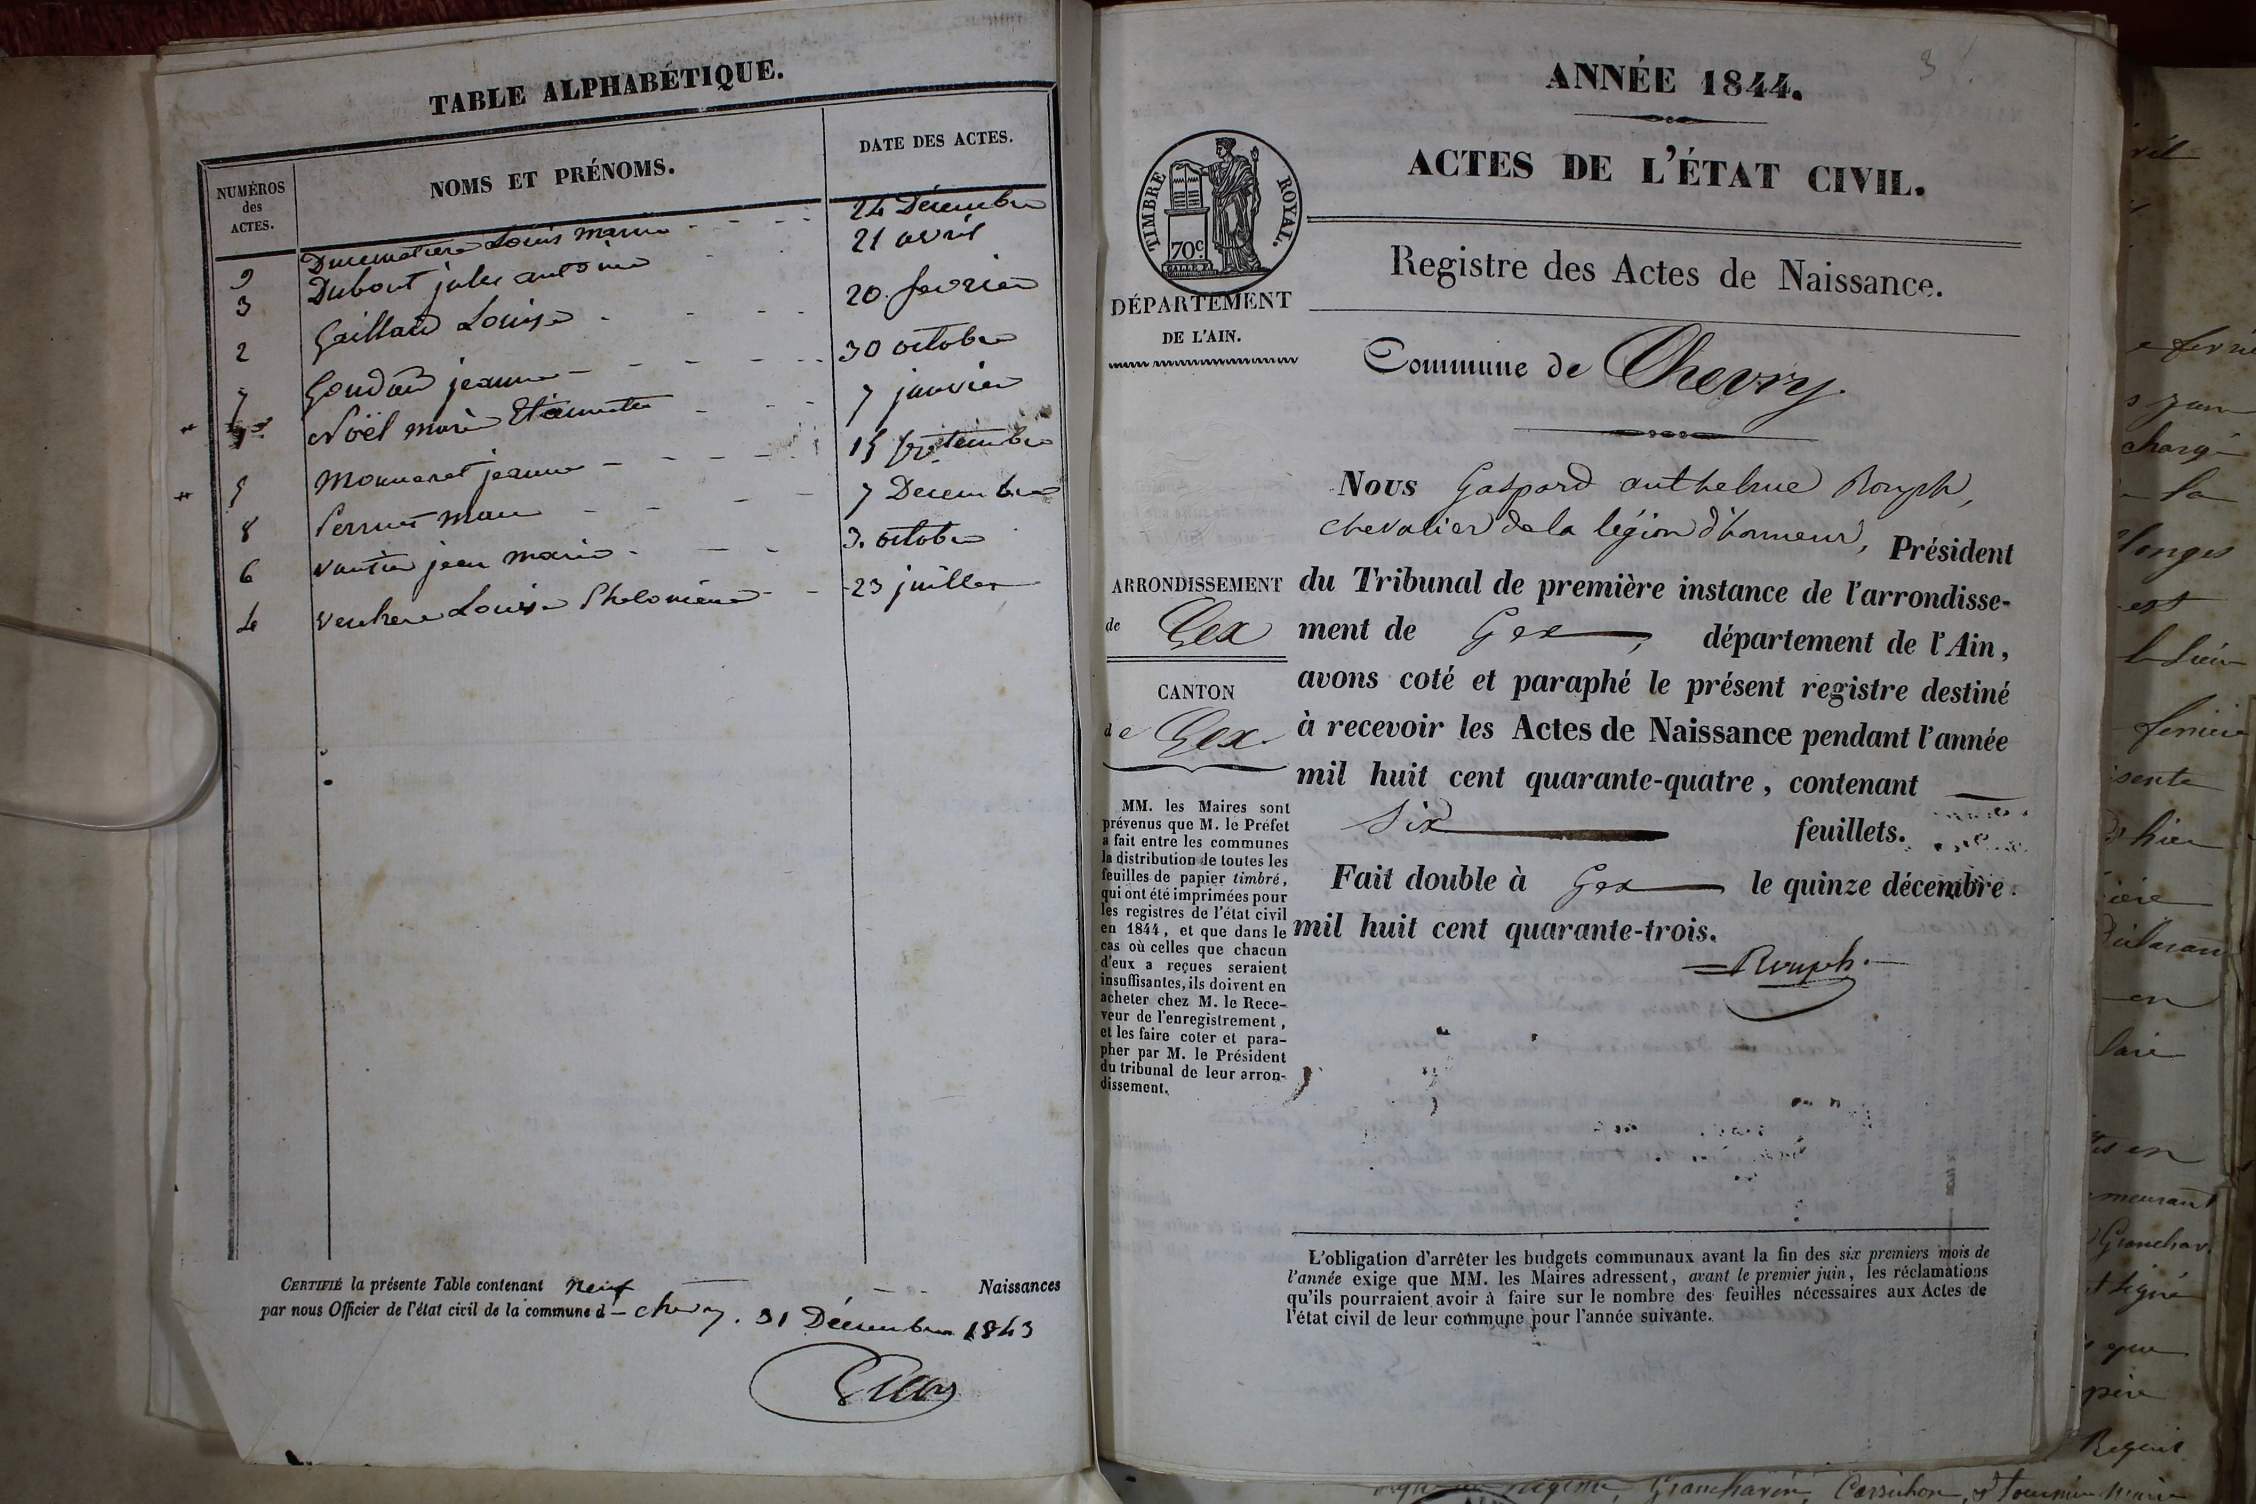 TABLE ALPHABÉTIQUE.
NUMÉROS
des
ACTES.
NOMS ET PRÉNOMS.
DATE DES ACTES.
9 Louis 24 Décembre
3 Dubout jules antoine 21 avril
2 Gaillard Louise 20. fevrier
7 Goudard jeanne 30 octobre
1 Noël marie Etiennette 7 janvier
5 Monneret jeanne 15 septembre
8 Perrut 7 Decembre
6 Vautier jean marie 3. octobre
4 Louise Phelomene 23 juillet
CERTIFIÉ la présente Table contenant neuf Naissances
par nous Officier de l'état civil de la commune d chevry. 31 Décembre 1843
3
ANNÉE 1844.
ACTES DE L'ÉTAT CIVIL.
TIMBRE ROYAL.
70c.
DÉPARTEMENT
DE L'AIN.
Registre des Actes de Naissance.
Commune de Chevry.
Nous Gaspard anthelme Rouph,
chevalier de la légion d'honneur, Président
du Tribunal de première instance de l'arrondisse-
ment de Gex, département de l'Ain,
avons coté et paraphé le présent registre destiné
à recevoir les Actes de Naissance pendant l'année
mil huit cent quarante-quatre, contenant
six feuillets.
Fait double à Gex le quinze décembre
mil huit cent quarante-trois.
Rouph.
ARRONDISSEMENT
de Gex
CANTON
de Gex.
MM. les Maires sont
prévenus que M. le Préfet
a fait entre les communes
la distribution de toutes les
feuilles de papier timbré,
qui ont été imprimées pour
les registres de l'état civil
en 1844, et que dans le
cas où celles que chacun
d'eux a reçues seraient
insuffisantes, ils doivent en
acheter chez M. le Rece-
veur de l'enregistrement,
et les faire coter et para-
pher par M. le Président
du tribunal de leur arron-
dissement.
L'obligation d'arrêter les budgets communaux avant la fin des six premiers mois de
l'année exige que MM. les Maires adressent, avant le premier juin, les réclamations
qu'ils pourraient avoir à faire sur le nombre des feuilles nécessaires aux Actes de
l'état civil de leur commune pour l'année suivante.